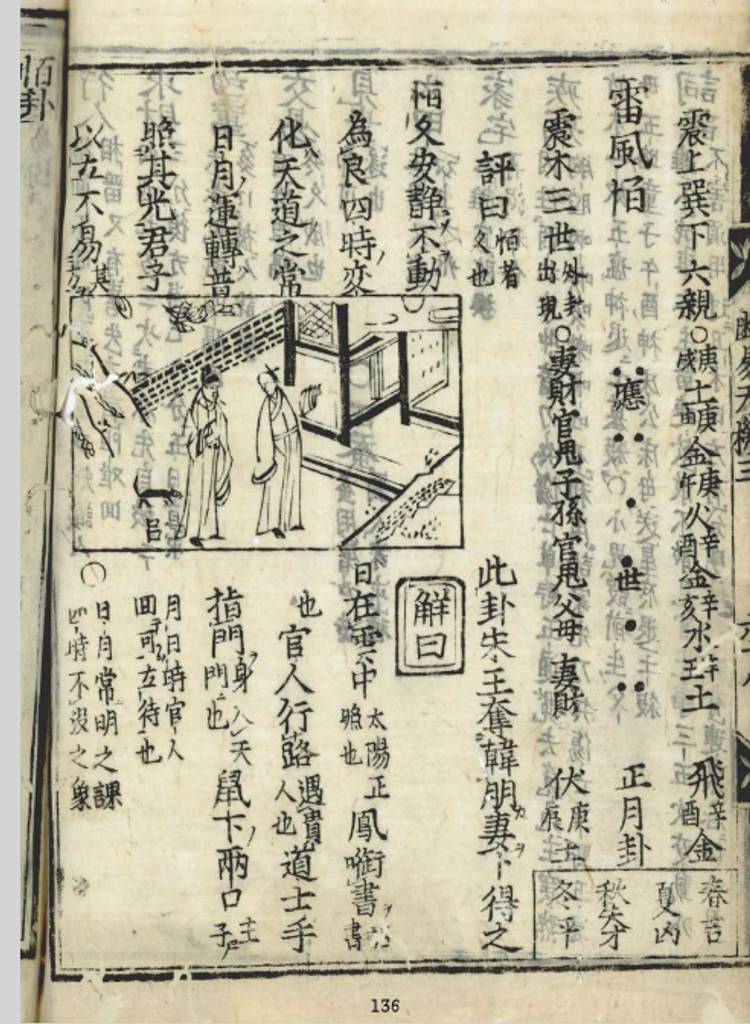 震上巽下六親○庚戌土庚申金庚午火辛酉金辛亥水辛丑土 飛辛酉金
雷風恒 應 世 正月卦
震木三世外卦出現○妻財官鬼子孫官鬼父母妻財 伏庚辰土
春吉
夏凶
秋失才
冬平
評曰恒者久也
恒久安静不動
為良四時変
化天道之常
日月運轉普
照其光君子
以立不易其方
此卦朱王奪韓朋妻卜得之
解曰
日在雲中太陽正照也鳳啣書
也官人行路遇貴人也道士手
指門身入天門也鼠下兩口
月日時官人回可立待也
○日月常明之課
四時不没之象
吕
136